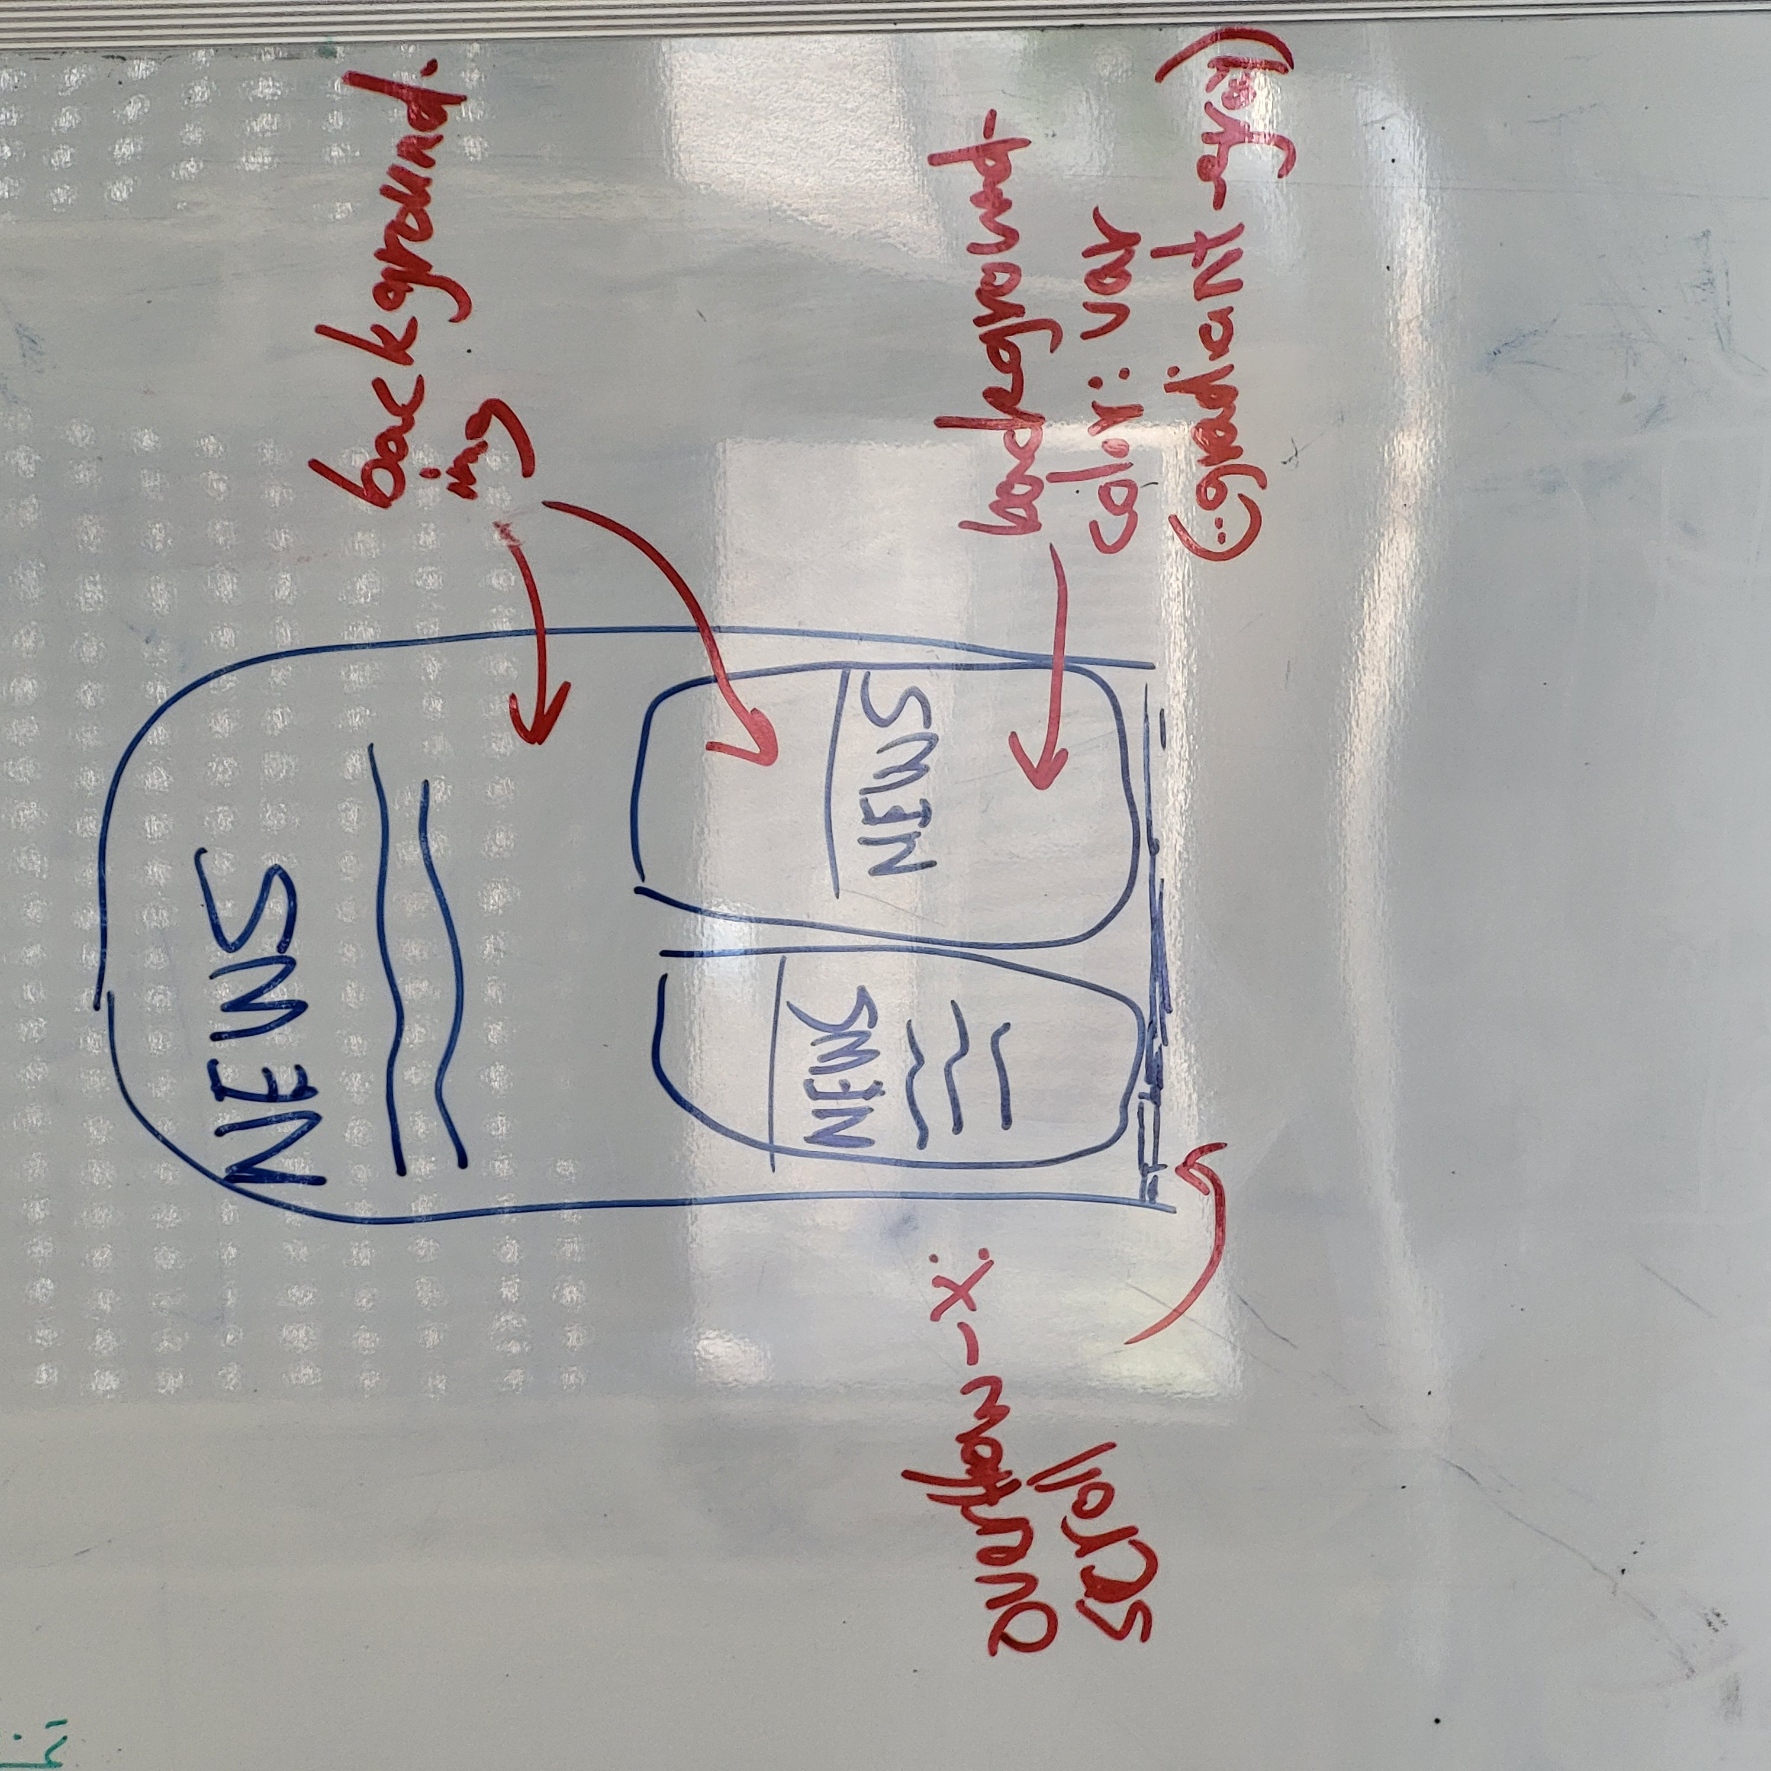 hi
NEWS
background-
img
NEWS
NEWS
overflow-x:
scroll
background-
color: var
(--gradiant-gray)